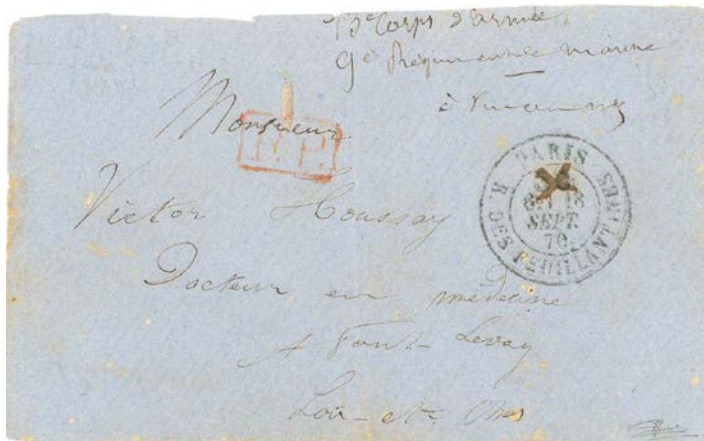 13e Corps d'armée
9e Régiment de marche
à Vincennes
Monsieur
P.P.
PARIS
R. DES FEUILLANTINES
18
SEPT.
70
Victor Houssay
Docteur en médecine
à Pont-Levoy
Loir-et-Cher